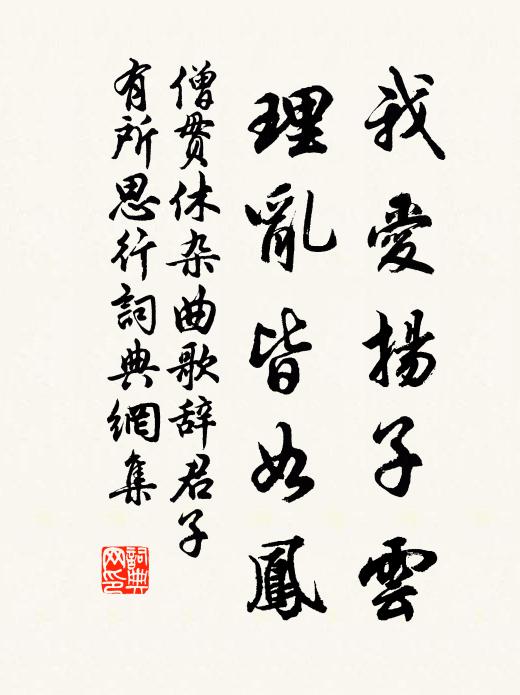 我愛揚子雲
理亂皆如鳳
僧贯休杂曲歌辞君子
有所思行詞典網集
詞典网印